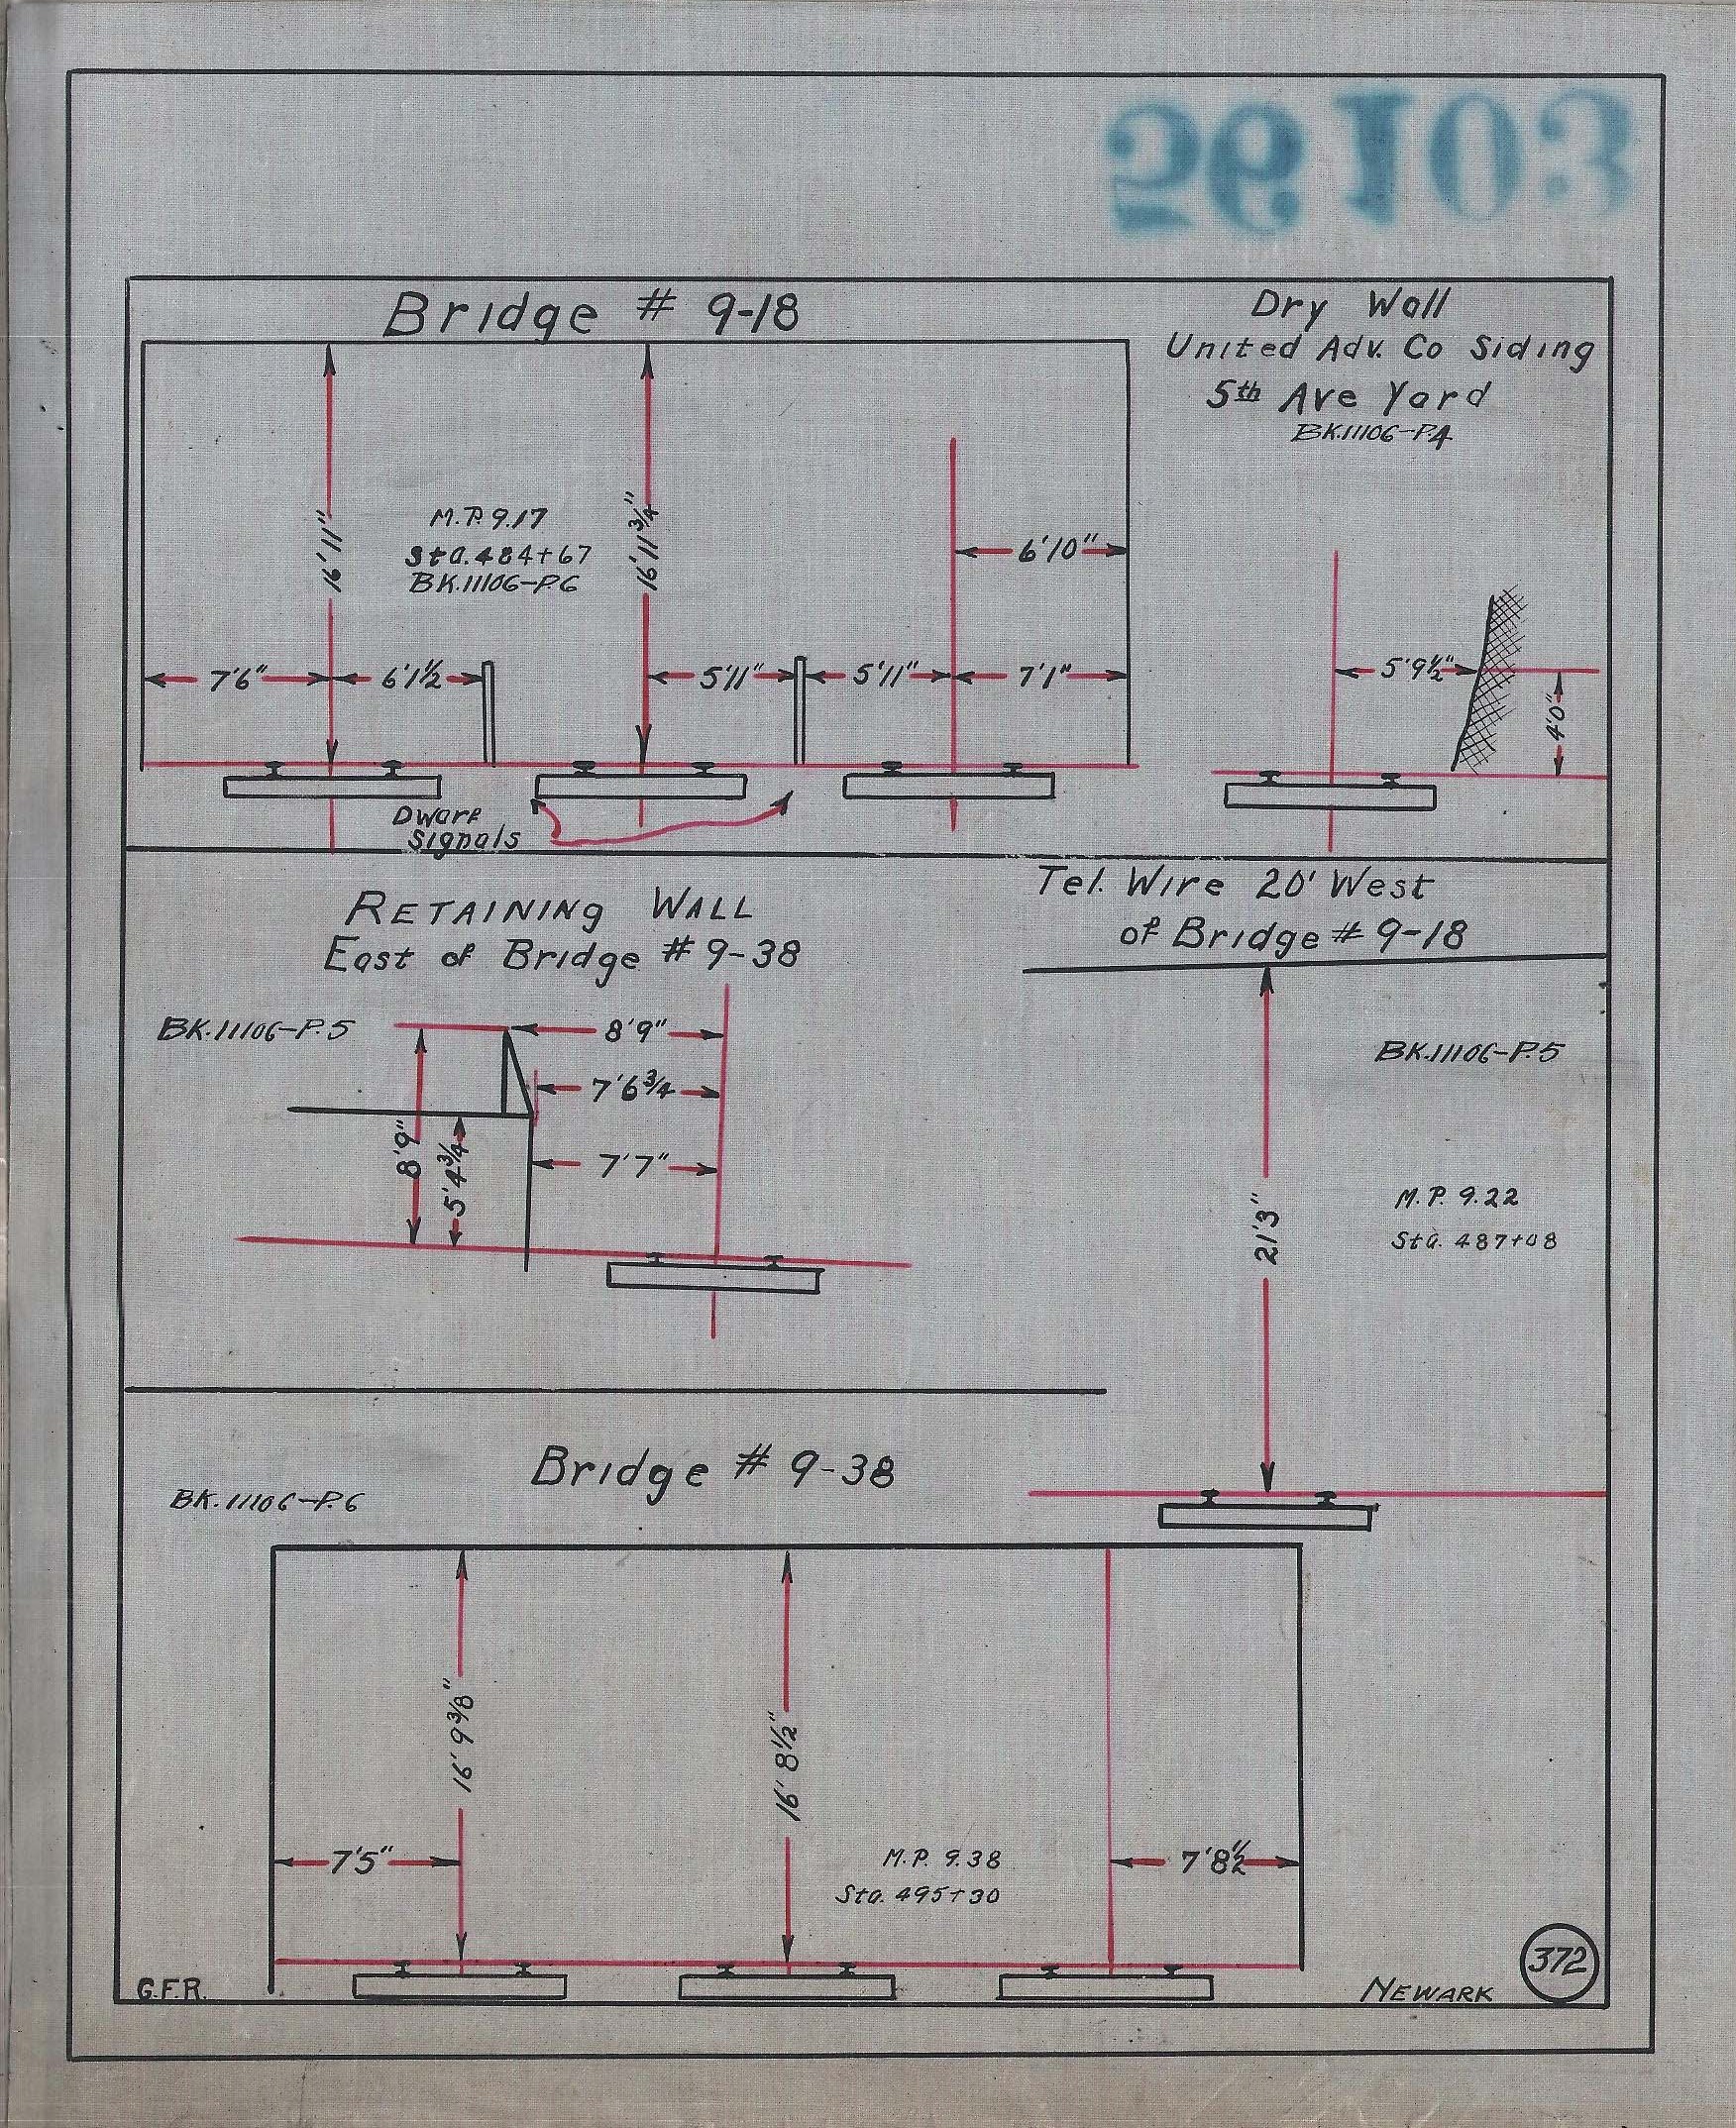 56103
Bridge # 9-18
16'11"
M.P. 9.17
Sta. 484+67
BK.11106-P.6
16'11 3/4"
6'10"
7'6"
6'1 1/2
5'11"
5'11"
7'1"
Dwarf
Signals
Dry Wall
United Adv. Co Siding
5th Ave Yard
BK.11106-P.4
5'9 1/2"
4'0"
RETAINING WALL
East of Bridge # 9-38
BK.11106-P.5
8'9"
7'6 3/4
7'7"
8'9"
5'4 3/4"
Tel. Wire 20' West
of Bridge # 9-18
BK.11106-P.5
21'3"
M.P. 9.22
Sta. 487+08
Bridge # 9-38
BK.11106-P.6
16' 9 3/8"
16' 8 1/2"
7'5"
M.P. 9.38
Sta. 495+30
7'8 1/2
G.F.R.
NEWARK
372